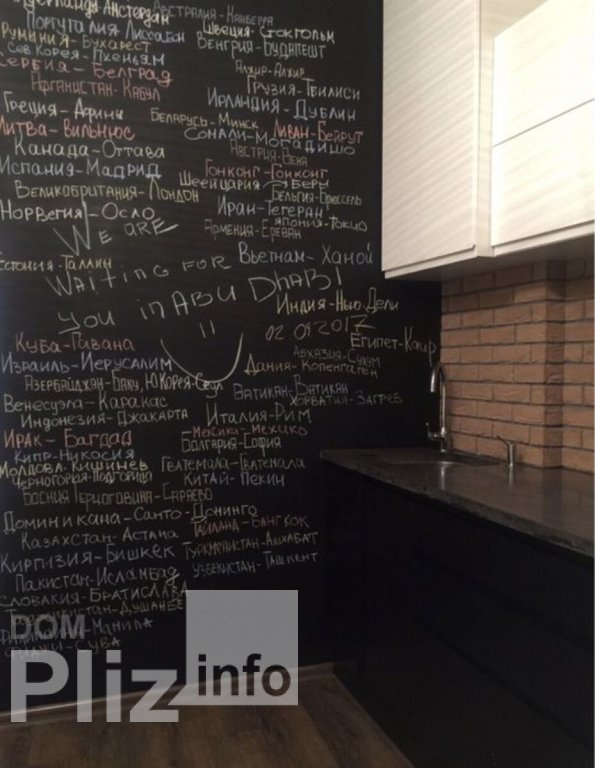 Нидерланды-Амстердам
Австралия-Канберра
Португалия Лиссабон
Швеция-Стокгольм
Румыния-Бухарест
Венгрия-Будапешт
Сев Корея-Пхеньян
Сербия-Белград
Алжир-Алжир
Афганистан-Кабул
Грузия-Тбилиси
Греция-Афины
Ирландия-Дублин
Беларусь-Минск
Литва-Вильнюс
Ливан-Бейрут
Сомали-Могадишо
Канада-Оттава
Австрия-Вена
Испания-Мадрид
Гонконг-Гонконг
Швейцария-Берн
Великобритания-Лондон
Бельгия-Брюссель
Норвегия-Осло
Иран-Тегеран
Япония-Токио
Армения-Ереван
We are
Вьетнам-Ханой
Эстония-Таллин
Waiting for
you in ABU DhABI
Индия-Нью Дели
02 09 2017
Куба-Гавана
Египет-Каир
Абхазия-Сухум
Израиль-Иерусалим
Дания-Копенгаген
Азербайджан-Баку, Ю Корея-Сеул
Ватикан-Ватикан
Венесуэла-Каракас
Хорватия-Загреб
Индонезия-Джакарта
Италия-Рим
Ирак-Багдад
Мексика-Мехико
Болгария-София
Кипр-Никосия
Молдова-Кишинев
Гватемала-Гватемала
Черногория-Подгорица
Китай-Пекин
Босния Герцоговина-Сараево
Доминикана-Санто-Доминго
Тайланд-Бангкок
Казахстан-Астана
Туркменистан-Ашхабат
Киргизия-Бишкек
Узбекистан-Ташкент
Пакистан-Исламбад
Словакия-Братислава
Таджикистан-Душанбе
Филиппины-Манила
Фиджи-Сува
DOM
Pliz info